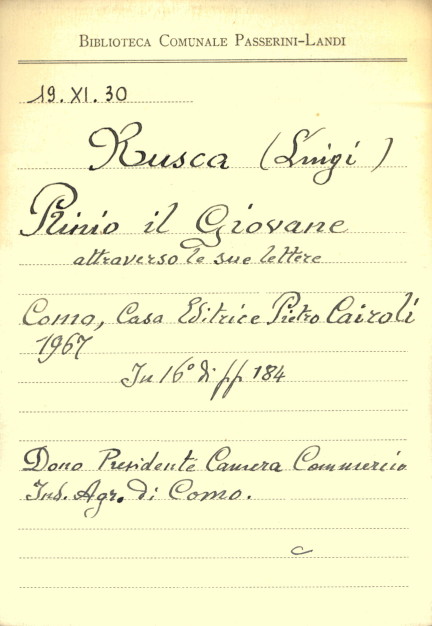 BIBLIOTECA COMUNALE PASSERINI-LANDI
19. XI. 30
Rusca (Luigi)
Plinio il Giovane
attraverso le sue lettere
Como, Casa Editrice Pietro Cairoli
1967
In 16° di pp 184
Dono Presidente Camera Commercio
Ind. Agr. di Como.
c